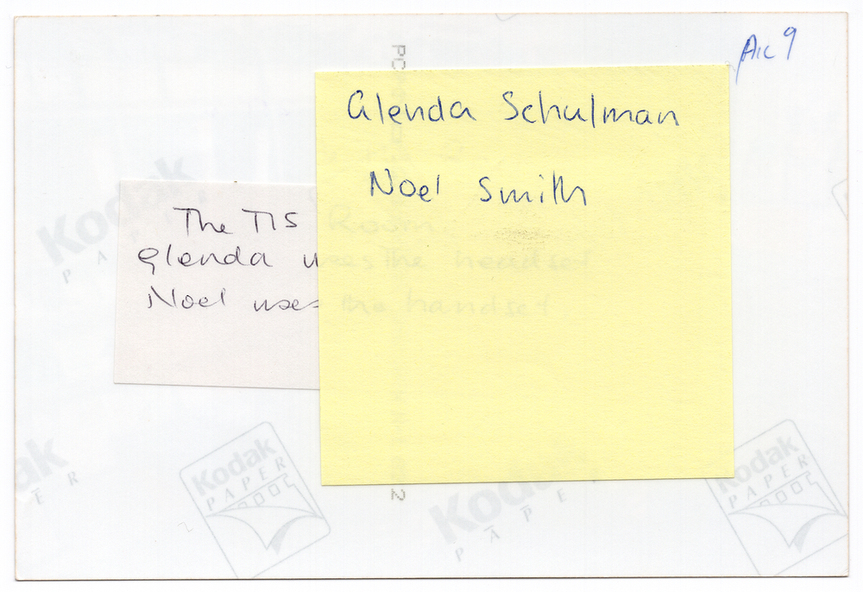 Aic 9
PC
Glenda Schulman
Noel Smith
The TIS Room.
Glenda uses the headset
Noel uses the handset
2
Kodak
PAPER
Kodak
PAPER
Kodak
PAPER
Kodak
PAPER